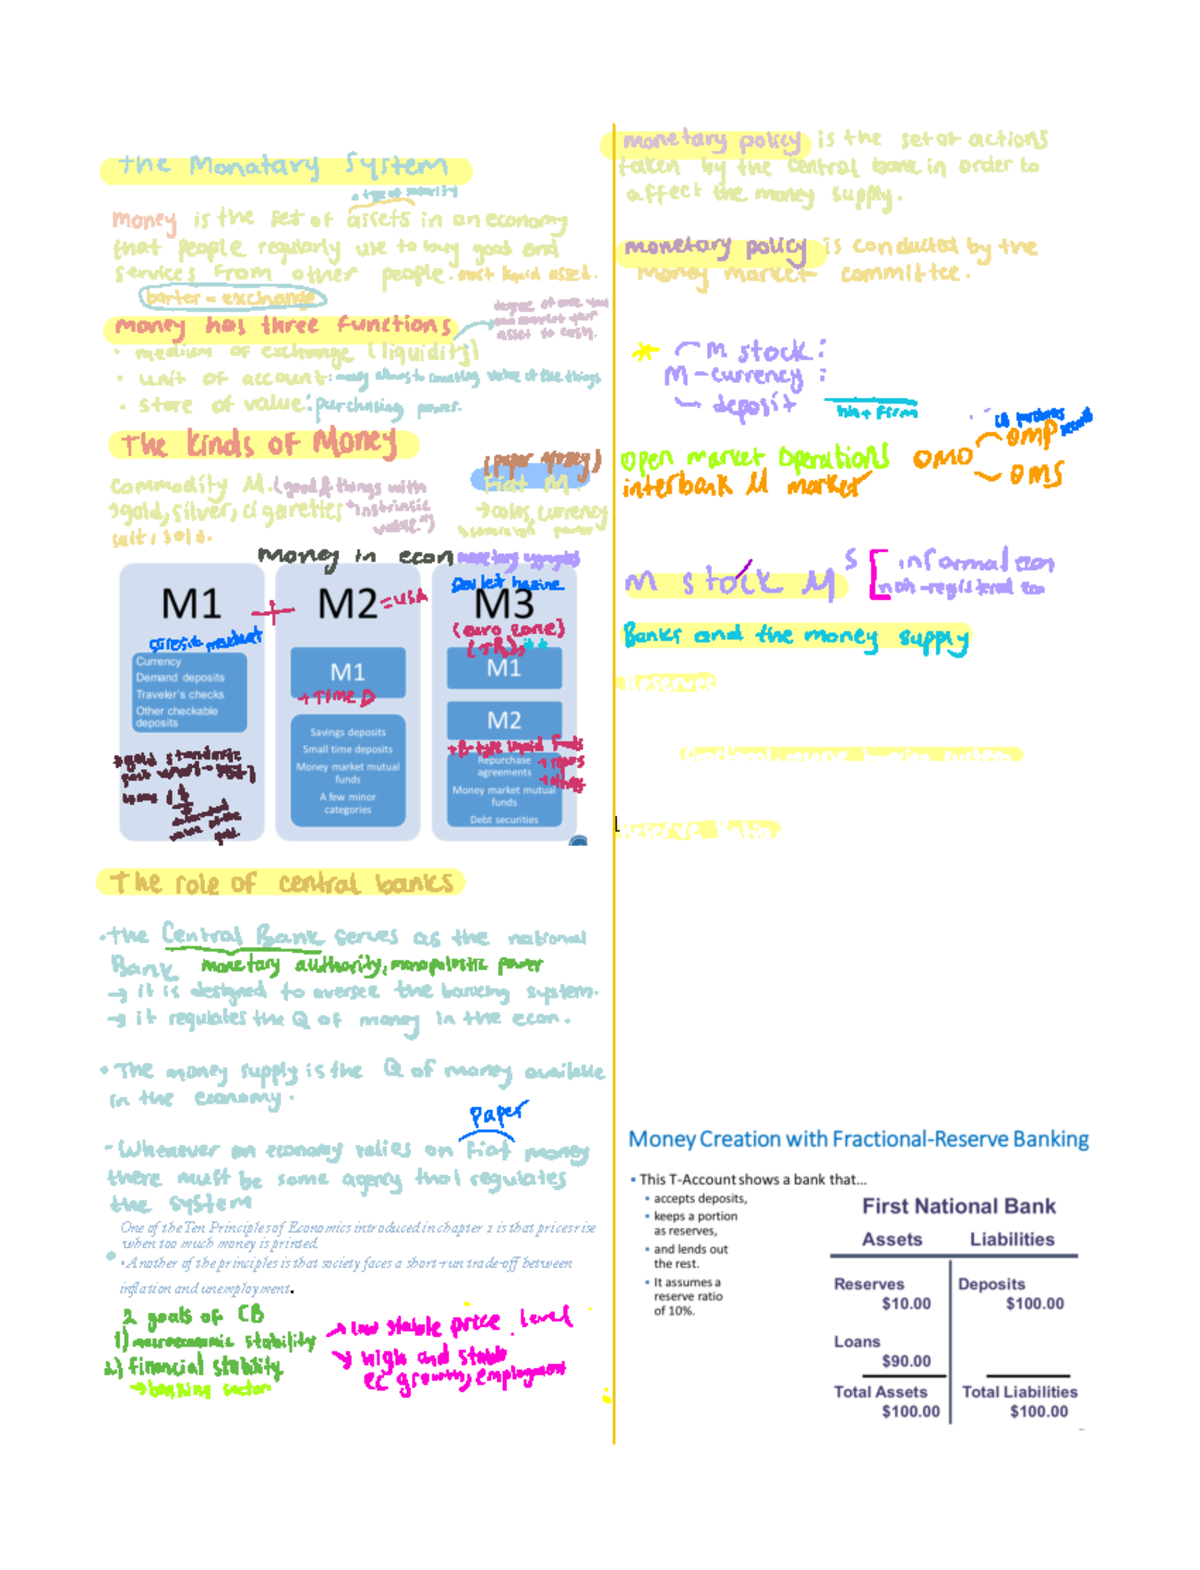 The Monatary System
money is the set of assets in an economy
that people regularly use to buy good and
services from other people. most liquid asset.
barter = exchange
money has three functions
degree of ease you
asset to cash.
• medium of exchange (liquidity)
• unit of account: value of the things
• store of value: purchasing power.
The kinds of Money
(paper money)
Fiat M.
commodity M. (good & things with
→gold, silver, cigarettes "instrinsic
value")
→coins, currency
salt, sold.
money in econ
M1
+
M2
=USA
M3
(euro zone)
(TR)
Currency
Demand deposits
Traveler's checks
Other checkable
deposits
→gold standard
M1
+ TIME D
Savings deposits
Small time deposits
Money market mutual
funds
A few minor
categories
M1
M2
Repurchase
agreements
Money market mutual
funds
Debt securities
The role of central banks
•the Central Bank serves as the national
Bank monetary authority, monopolistic power
→ it is designed to oversee the banking system.
→ it regulates the Q of money in the econ.
• The money supply is the Q of money available
in the economy.
paper
- Whenever an economy relies on fiat money
there must be some agency that regulates
the system
One of the Ten Principles of Economics introduced in chapter 1 is that prices rise
when too much money is printed.
•Another of the principles is that society faces a short-run trade-off between
inflation and unemployment.
2 goals of CB
1) macroeconomic stability
2) financial stability
→banking sector
→ low stable price level
→ high and stable
ec growth, employment
monetary policy is the set of actions
taken by the central bank in order to
affect the money supply.
monetary policy is conducted by the
money market committee.
* M stock:
M - currency :
deposit
hh + firm
open market Operations OMO
OMP
OMS
interbank M market
m stock Mˢ [ informal econ
non-registered eco
Banks and the money supply
Reserves
Fractional-reserve banking system
L
Reserve Ratio
Money Creation with Fractional-Reserve Banking
▪ This T-Account shows a bank that...
▪ accepts deposits,
▪ keeps a portion
as reserves,
▪ and lends out
the rest.
▪ It assumes a
reserve ratio
of 10%.
First National Bank
Assets Liabilities
Reserves Deposits
$10.00 $100.00
Loans
$90.00
Total Assets Total Liabilities
$100.00 $100.00